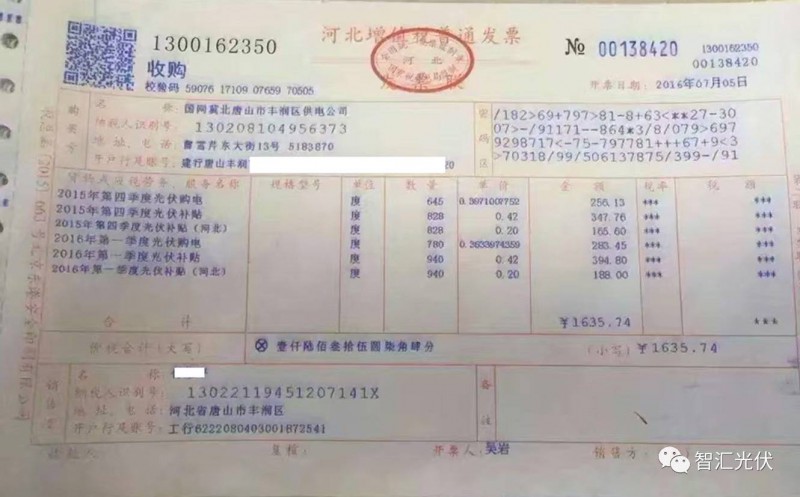 1300162350
河北增值税普通发票
№ 00138420
1300162350
00138420
收购
校验码 59076 17109 07659 70505
河北
开票日期: 2016年07月05日
购买方
名 称: 国网冀北唐山市丰润区供电公司
纳税人识别号: 130208104956373
地址、电话: 曹雪芹东大街13号 5183870
开户行及账号: 建行唐山丰润 20
密码区
/182>69+797>81-8+63<**27-30
07>-/91171--864*3/8/079>697
9298717<-75-797781+++67+9<3
>70318/99/506137875/399-/91
货物或应税劳务、服务名称 规格型号 单位 数量 单价 金额 税率 税额
2015年第四季度光伏购电 度 645 0.3971007752 256.13 *** ***
2015年第四季度光伏补贴 度 828 0.42 347.76 *** ***
2015年第四季度光伏补贴(河北) 度 828 0.20 165.60 *** ***
2016年第一季度光伏购电 度 780 0.3633974359 283.45 *** ***
2016年第一季度光伏补贴 度 940 0.42 394.80 *** ***
2016年第一季度光伏补贴(河北) 度 940 0.20 188.00 *** ***
合 计 ¥1635.74 ***
价税合计(大写) ⊗ 壹仟陆佰叁拾伍圆柒角肆分 (小写) ¥1635.74
销售方
名 称:
纳税人识别号: 13022119451207141X
地址、电话: 河北省唐山市丰润区
开户行及账号: 工行6222080403001872541
备注
收款人: 复核: 开票人: 吴岩 销售方:
智汇光伏